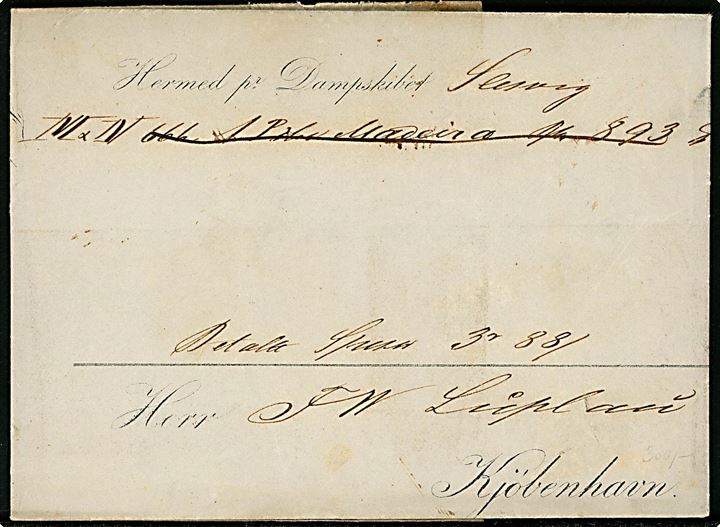 Hermed pr Dampskibet Slesvig
N & N 666 1 Madeira 893
Betalt 3 88/
Herr F W Lüplau
Kjöbenhavn.